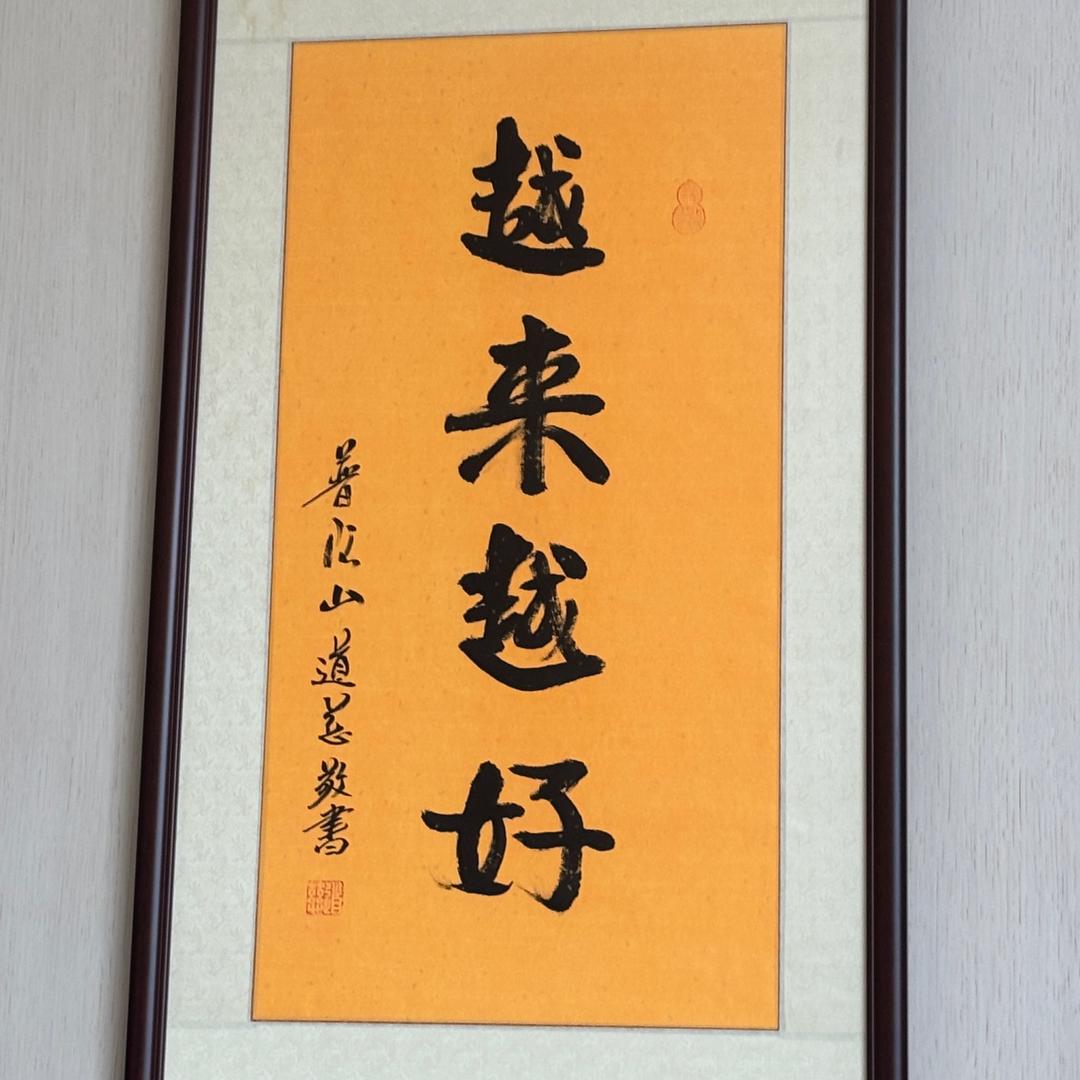 越来越好
普陀山道慈敬書